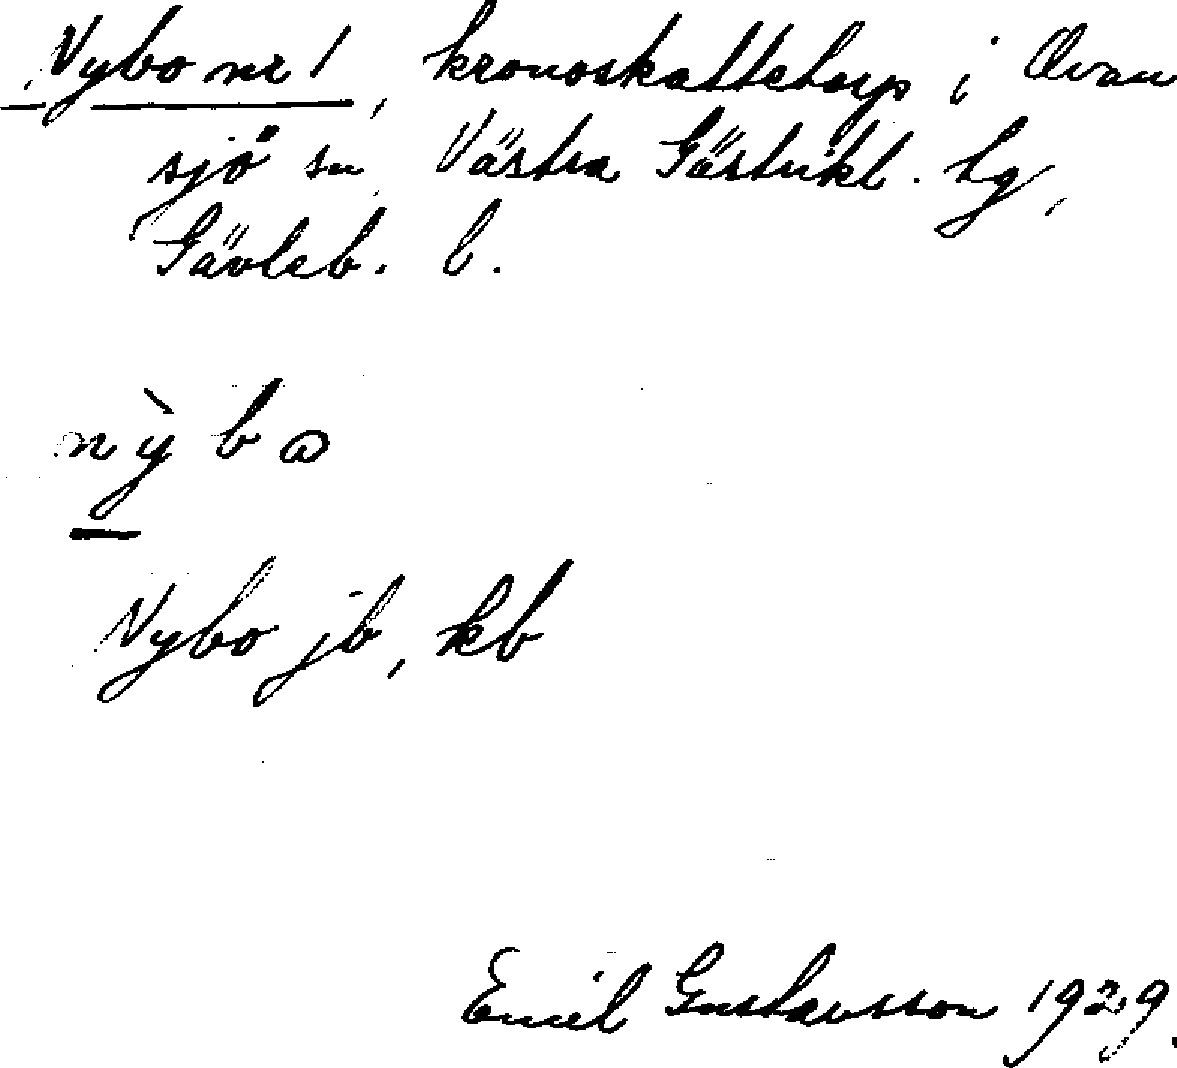 Nybo nr 1, kronoskattetorp i Ovan
sjö sn Västra Gästrikl. tg,
Gävleb. l.
nỳbɷ
Nybo jb, kb
Emil Gustavsson 1929.